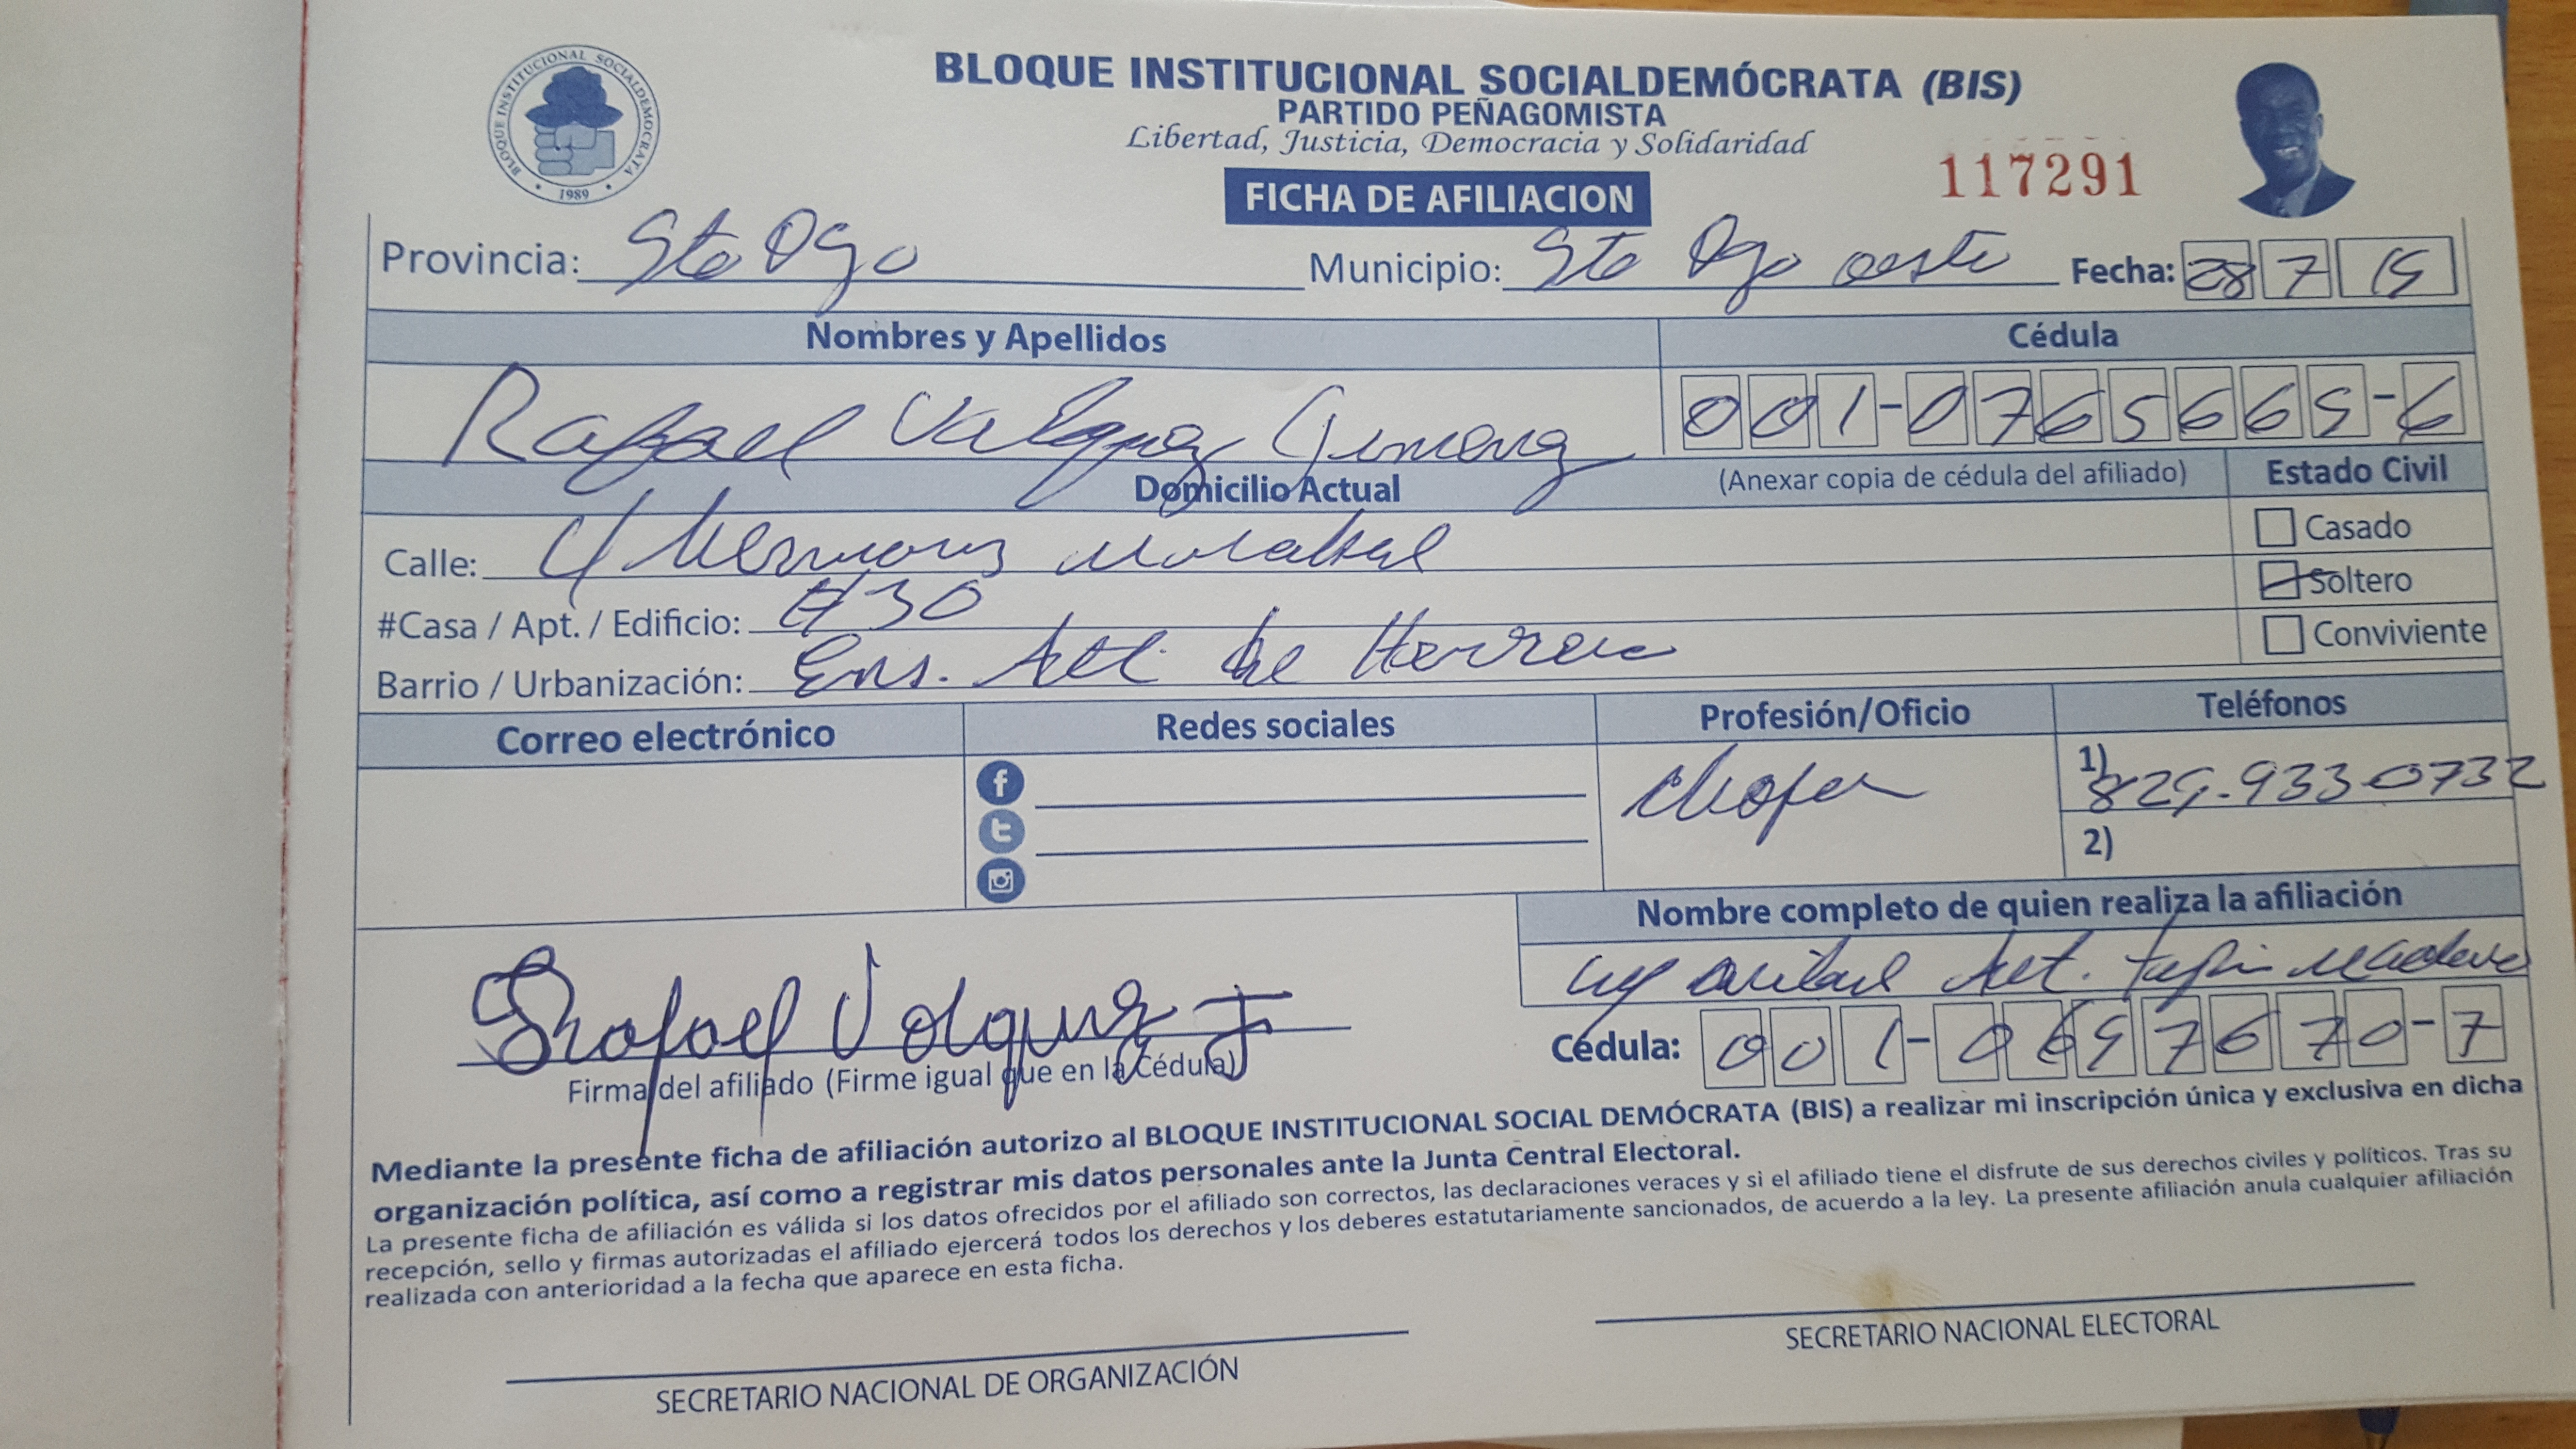 BLOQUE INSTITUCIONAL SOCIALDEMOCRATA
1989
BLOQUE INSTITUCIONAL SOCIALDEMÓCRATA (BIS)
PARTIDO PEÑAGOMISTA
Libertad, Justicia, Democracia y Solidaridad
117291
FICHA DE AFILIACION
Provincia: Sto Dgo Municipio: Sto Dgo oeste Fecha: 28 7 15
Nombres y Apellidos Cédula
Rafael 001-0765665-6
Domicilio Actual (Anexar copia de cédula del afiliado) Estado Civil
Calle: Casado
#Casa / Apt. / Edificio: #30 Soltero
Barrio / Urbanización: Ens. Alt. de Herrera Conviviente
Correo electrónico Redes sociales Profesión/Oficio Teléfonos
Chofer 1) 829-933-0732
2)
Nombre completo de quien realiza la afiliación
Rafael Volquez J
Firma del afiliado (Firme igual que en la Cédula) Cédula: 001-0697670-7
Mediante la presente ficha de afiliación autorizo al BLOQUE INSTITUCIONAL SOCIAL DEMÓCRATA (BIS) a realizar mi inscripción única y exclusiva en dicha
organización política, así como a registrar mis datos personales ante la Junta Central Electoral.
La presente ficha de afiliación es válida si los datos ofrecidos por el afiliado son correctos, las declaraciones veraces y si el afiliado tiene el disfrute de sus derechos civiles y políticos. Tras su
recepción, sello y firmas autorizadas el afiliado ejercerá todos los derechos y los deberes estatutariamente sancionados, de acuerdo a la ley. La presente afiliación anula cualquier afiliación
realizada con anterioridad a la fecha que aparece en esta ficha.
SECRETARIO NACIONAL DE ORGANIZACIÓN SECRETARIO NACIONAL ELECTORAL